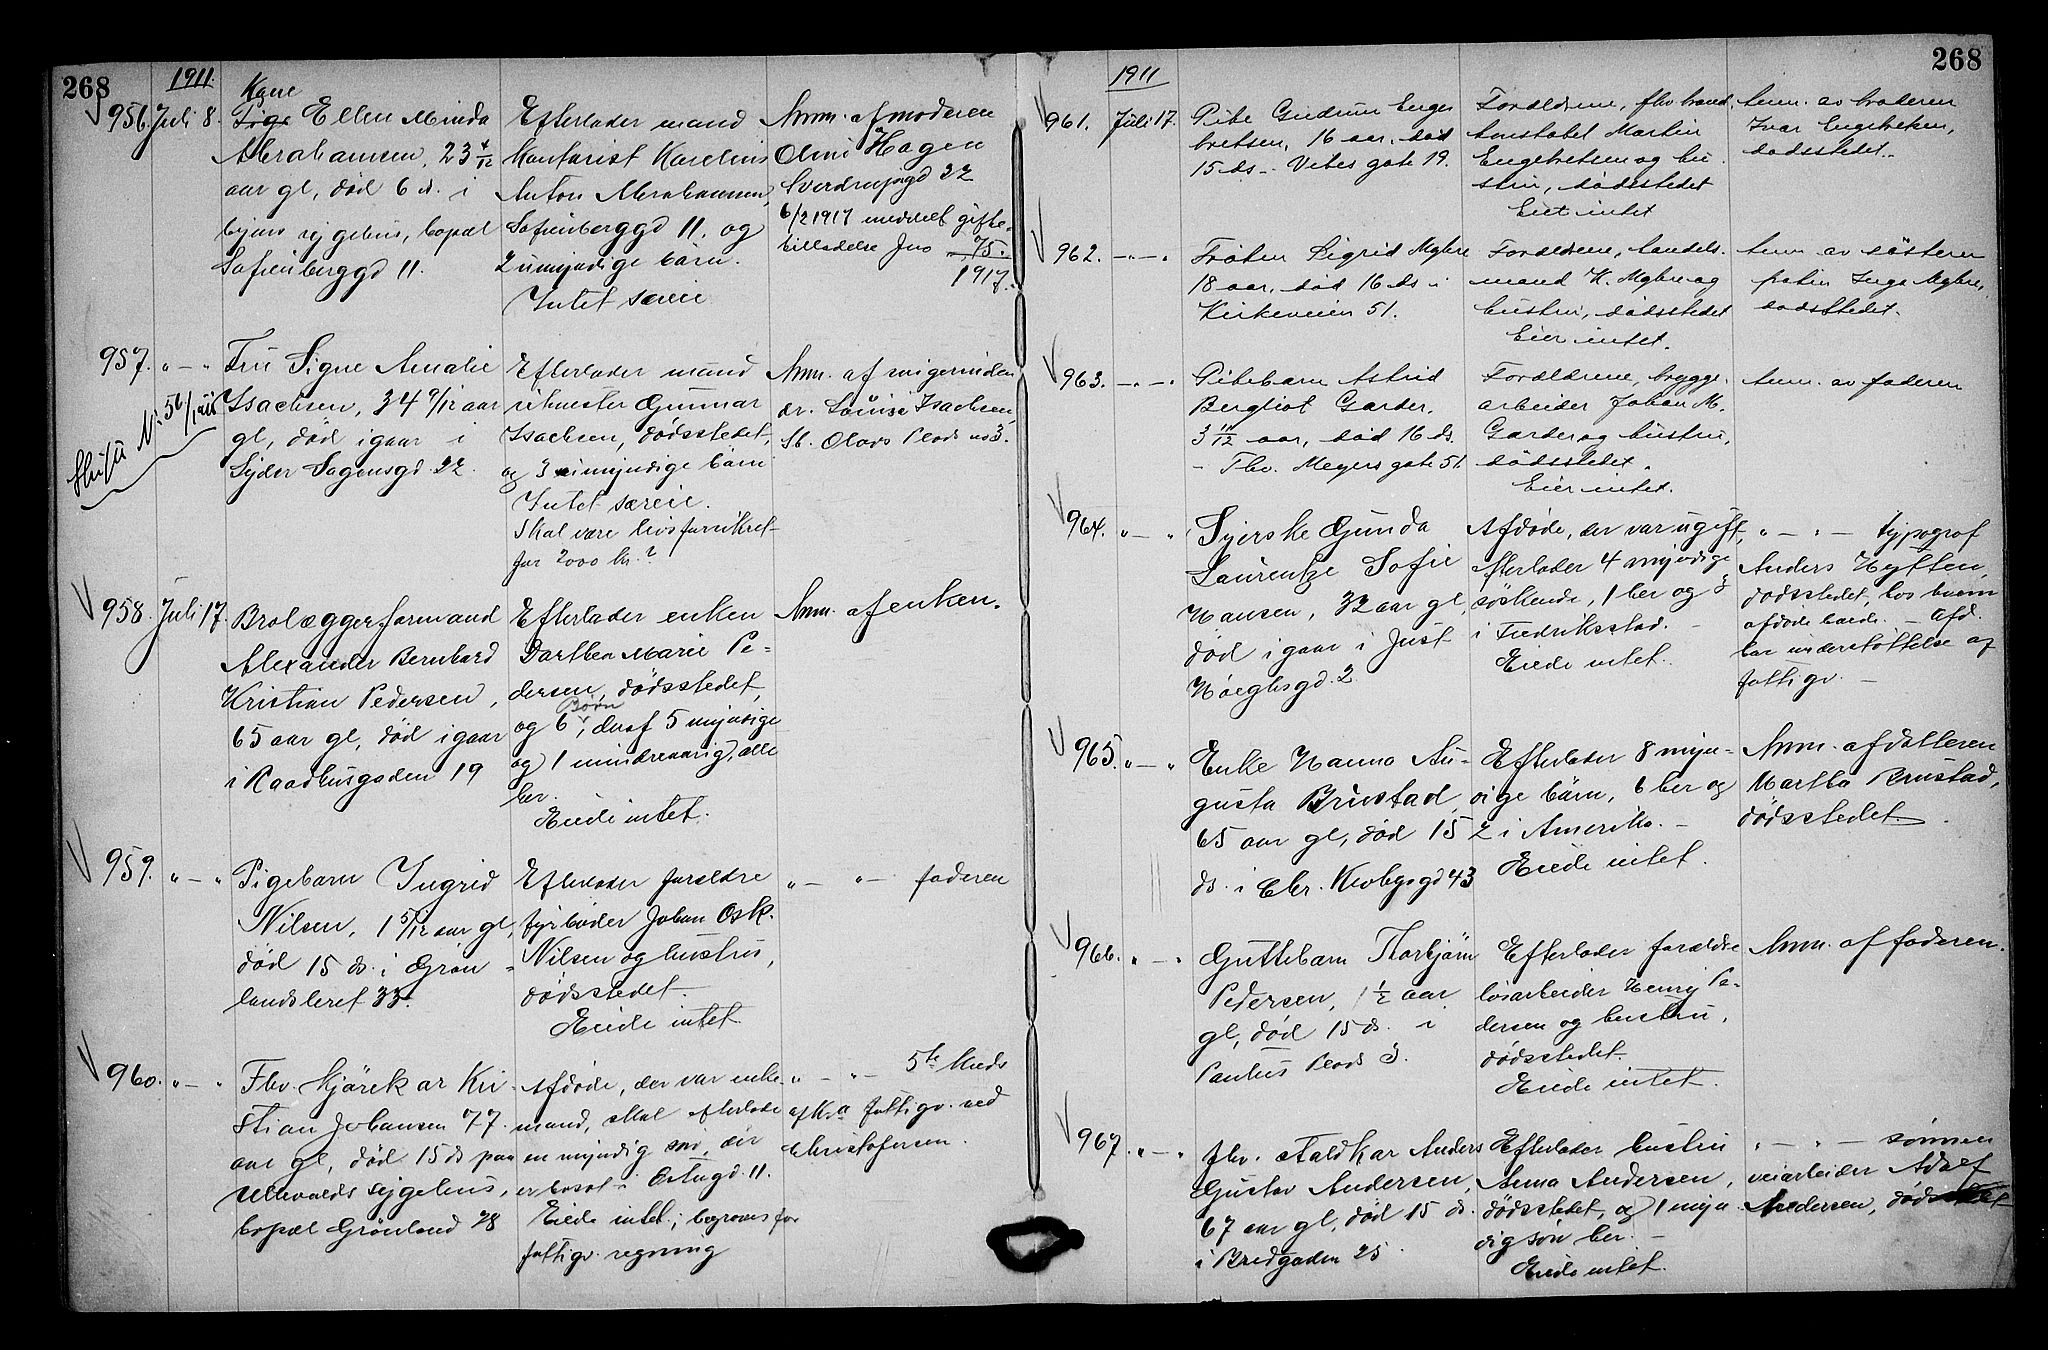 268
1911.
956. Juli 8.
Kone
Pige Ellen Minda
Abrahamsen, 23 4/12
aar gl, död 6 ds. i
byens sygehus, bopæl
Sofienberggd 11.
Efterlader mand
kontorist Karelius
Anton Abrahamsen,
Sofienberggd 11. og
2 umyndige börn.
Intet særeie
Anm. af moderen
Olini Hagen
Sverdrupsgd 22
6/2 1917 meddelt gifte-
tilladelse Jno 75.
1917.
957. " — "
Skifte No 56/1911
Fru Signe Amalie
Isachsen, 34 9/12 aar
gl, död igaar i
Syder Sagensgd. 22.
Efterlader mand
Gunnar
Isachsen, dödsstedet,
og 3 umyndige börn
Intet særeie.
Skal være livsforsikret
for 2000 kr.?
Anm. af svigerinden
Louise Isachsen,
St. Olavs Plads no 3.
958. Juli 17.
Brolæggerformand
Alexander Bernhard
Kristian Pedersen,
65 aar gl, död igaar
i Raadhusgaden 19
Efterlader enken
Dorthea Marie Pe-
dersen, dödsstedet,
Börn
og 6, deraf 5 myndige
og 1 mindreaarig, alle
her.
Eiede intet.
Anm. af enken.
959. " — "
Pigebarn Ingrid
Nilsen, 1 5/12 aar gl,
död 15 ds. i Grön-
landsleret 33.
Efterlader forældre
fyrböder Johan Osk.
Nilsen og hustru,
dödsstedet.
Eiede intet.
" — " — faderen
960. " — "
Fhv. Kjörekar Kri-
stian Johansen 77.
aar gl, död 15 ds paa
Ullevolds sygehus,
bopæl Grönland 28
Afdöde, der var enke-
mand, skal efterlade
en myndig sön, der
er bosat i Ostugd. 11.
Eiede intet; begraves for
fattigv. regning
" — " — 5te kreds
af Kra fattigv. ved
Christofersen.
268
1911
961. Juli 17.
Pike Gudrun Enge-
bretsen, 16 aar, död
15 ds — Vibes gate 19.
Forældrene, fhv. brand-
konstabel Martin
Engebretsen og hu-
stru, dödsstedet
Eiet intet
Anm. av broderen
Ivar Engebretsen,
dödsstedet.
962. — " — "
Fröken Sigrid Myhre
18 aar, död 16 ds i
Kirkeveien 51.
Forældrene, handels-
mand K. Myhre og
hustru, dödsstedet
Eier intet.
Anm. av sösteren
fröken Inga Myhre,
dödsstedet.
963. — " — "
Pikebarn Astrid
Bergliot Garder,
3 11/12 aar, död 16 ds.
— Thv. Meyers gate 51
Forældrene, brygge-
arbeider Johan M.
Garder og hustru,
dödsstedet.
Eier intet.
Anm. av faderen
964. " — "
Syerske Gunda
Laurentze Sofie
Hansen, 32 aar gl,
död igaar i Just
Höeghsgd. 2
Afdöde, der var ugift,
efterlader 4 myndige
söskende, 1 her og 3
i Fredriksstad. —
Eiede intet.
" — " — typograf
Anders Hytten,
dödsstedet, hos hvem
afdöde boede. — Afd.
har understöttelse af
fattigv. —
965. " — "
Enke Hanna Au-
gusta Brustad,
65 aar gl, död 15
ds. i Chr. Krohgsgd 43
Efterlader 8 myn-
dige börn, 6 her og
2 i Amerika. —
Eiede intet.
Anm. af datteren
Martha Brustad,
dödsstedet.
966. " — "
Guttebarn Thorbjörn
Pedersen, 1 1/2 aar
gl, död 15 ds. i
Paulus Plads 3.
Efterlader forældre
lösarbeider Henry Pe-
dersen og hustru,
dödsstedet.
Eiede intet.
Anm. af faderen.
967. " — "
fhv. Staldkar Anders
Gustav Andersen,
67 aar gl, död 15 ds.
i Bredgaden 25.
Efterlader hustru
Anna Andersen,
dödsstedet, og 1 myn-
dig sön her. —
Eiede intet.
" — " — sönnen
veiarbeider Adolf
Andersen, dödsstedet